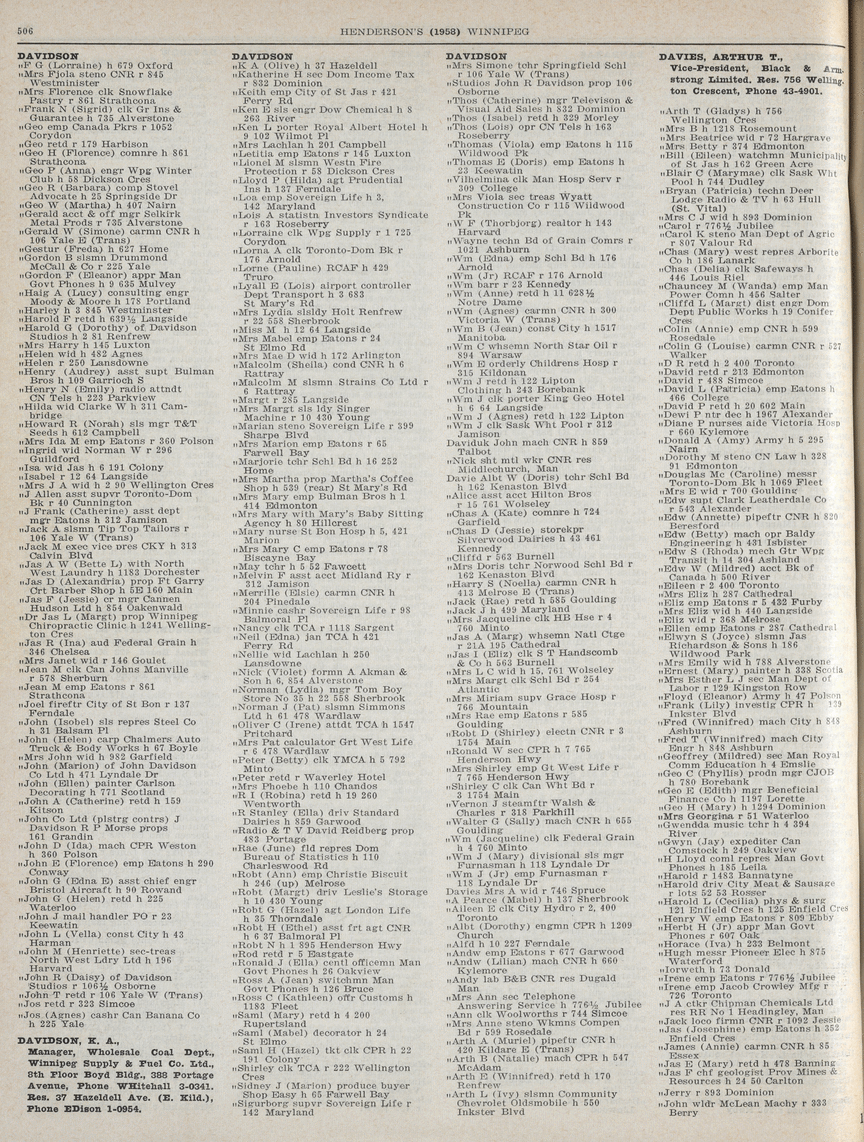 506
HENDERSON'S (1958) WINNIPEG
DAVIDSON
„F G (Lorraine) h 679 Oxford
„Mrs Fjola steno CNR r 845
Westminister
„Mrs Florence clk Snowflake
Pastry r 861 Strathcona
„Frank N (Sigrid) clk Gr Ins &
Guarantee h 735 Alverstone
„Geo emp Canada Pkrs r 1052
Corydon
„Geo retd r 179 Harbison
„Geo H (Florence) comnre h 861
Strathcona
„Geo P (Anna) engr Wpg Winter
Club h 58 Dickson Cres
„Geo R (Barbara) comp Stovel
Advocate h 25 Springside Dr
„Geo W (Martha) h 407 Nairn
„Gerald acct & off mgr Selkirk
Metal Prods r 735 Alverstone
„Gerald W (Simone) carmn CNR h
106 Yale E (Trans)
„Gestur (Freda) h 627 Home
„Gordon B slsmn Drummond
McCall & Co r 225 Yale
„Gordon F (Eleanor) appr Man
Govt Phones h 9 635 Mulvey
„Haig A (Lucy) consulting engr
Moody & Moore h 178 Portland
„Harley h 3 845 Westminster
„Harold F retd h 639½ Langside
„Harold G (Dorothy) of Davidson
Studios h 2 81 Renfrew
„Mrs Harry h 145 Luxton
„Helen wid h 482 Agnes
„Helen r 250 Lansdowne
„Henry (Audrey) asst supt Bulman
Bros h 109 Garrioch S
„Henry N (Emily) radio attndt
CN Tels h 223 Parkview
„Hilda wid Clarke W h 311 Cam-
bridge
„Howard R (Norah) sls mgr T&T
Seeds h 612 Campbell
„Mrs Ida M emp Eatons r 360 Polson
„Ingrid wid Norman W r 296
Guildford
„Isa wid Jas h 6 191 Colony
„Isabel r 12 64 Langside
„Mrs J A wid h 2 90 Wellington Cres
„J Allen asst supvr Toronto-Dom
Bk r 40 Cunnington
„J Frank (Catherine) asst dept
mgr Eatons h 312 Jamison
„Jack A slsmn Tip Top Tailors r
106 Yale W (Trans)
„Jack M exec vice pres CKY h 313
Calvin Blvd
„Jas A W (Bette L) with North
West Laundry h 1183 Dorchester
„Jas D (Alexandria) prop Ft Garry
Crt Barber Shop h 5E 160 Main
„Jas F (Jessie) cr mgr Cannen
Hudson Ltd h 854 Oakenwald
„Dr Jas L (Margt) prop Winnipeg
Chiropractic Clinic h 1241 Welling-
ton Cres
„Jas R (Ina) aud Federal Grain h
346 Chelsea
„Mrs Janet wid r 146 Goulet
„Jean M clk Can Johns Manville
r 578 Sherburn
„Jean M emp Eatons r 861
Strathcona
„Joel fireftr City of St Bon r 137
Ferndale
„John (Isobel) sls repres Steel Co
h 31 Balsam Pl
„John (Helen) carp Chalmers Auto
Truck & Body Works h 67 Boyle
„Mrs John wid h 982 Garfield
„John (Marion) of John Davidson
Co Ltd h 471 Lyndale Dr
„John (Ellen) painter Carlson
Decorating h 771 Scotland
„John A (Catherine) retd h 159
Kitson
„John Co Ltd (plstrg contrs) J
Davidson R P Morse props
161 Grandin
„John D (Ida) mach CPR Weston
h 360 Polson
„John E (Florence) emp Eatons h 290
Conway
„John G (Edna E) asst chief engr
Bristol Aircraft h 90 Rowand
„John G (Helen) retd h 225
Waterloo
„John J mail handler PO r 23
Keewatin
„John L (Vella) const City h 43
Harman
„John M (Henriette) sec-treas
North West Ldry Ltd h 196
Harvard
„John R (Daisy) of Davidson
Studios r 106½ Osborne
„John T retd r 106 Yale W (Trans)
„Jos retd r 323 Simcoe
„Jos (Agnes) cashr Can Banana Co
h 225 Yale
DAVIDSON, K. A.,
Manager, Wholesale Coal Dept.,
Winnipeg Supply & Fuel Co. Ltd.,
8th Floor Boyd Bldg., 388 Portage
Avenue, Phone WHitehall 3-0341.
Res. 37 Hazeldell Ave. (E. Kild.),
Phone EDison 1-0954.
DAVIDSON
„K A (Olive) h 37 Hazeldell
„Katherine H sec Dom Income Tax
r 832 Dominion
„Keith emp City of St Jas r 421
Ferry Rd
„Ken E sls engr Dow Chemical h 8
263 River
„Ken L porter Royal Albert Hotel h
9 102 Wilmot Pl
„Mrs Lachlan h 201 Campbell
„Letitia emp Eatons r 145 Luxton
„Lionel M slsmn Westn Fire
Protection r 58 Dickson Cres
„Lloyd P (Hilda) agt Prudential
Ins h 137 Ferndale
„Loa emp Sovereign Life h 3,
142 Maryland
„Lois A statistn Investors Syndicate
r 163 Roseberry
„Lorraine clk Wpg Supply r 1 725
Corydon
„Lorna A clk Toronto-Dom Bk r
176 Arnold
„Lorne (Pauline) RCAF h 429
Truro
„Lyall E (Lois) airport controller
Dept Transport h 3 683
St Mary's Rd
„Mrs Lydia slsldy Holt Renfrew
r 22 558 Sherbrook
„Miss M h 12 64 Langside
„Mrs Mabel emp Eatons r 24
St Elmo Rd
„Mrs Mae D wid h 172 Arlington
„Malcolm (Sheila) cond CNR h 6
Rattray
„Malcolm M slsmn Strains Co Ltd r
6 Rattray
„Margt r 285 Langside
„Mrs Margt sls ldy Singer
Machine r 10 430 Young
„Marian steno Sovereign Life r 399
Sharpe Blvd
„Mrs Marion emp Eatons r 65
Farwell Bay
„Marjorie tchr Schl Bd h 16 252
Home
„Mrs Martha prop Martha's Coffee
Shop h 539 (rear) St Mary's Rd
„Mrs Mary emp Bulman Bros h 1
414 Edmonton
„Mrs Mary with Mary's Baby Sitting
Agency h 80 Hillcrest
„Mary nurse St Bon Hosp h 5, 421
Marion
„Mrs Mary C emp Eatons r 78
Biscayne Bay
„May tchr h 5 52 Fawcett
„Melvin F asst acct Midland Ry r
312 Jamison
„Merrille (Elsie) carmn CNR h
204 Pinedale
„Minnie cashr Sovereign Life r 98
Balmoral Pl
„Nancy clk TCA r 1118 Sargent
„Neil (Edna) jan TCA h 421
Ferry Rd
„Nellie wid Lachlan h 250
Lansdowne
„Nick (Violet) formn A Akman &
Son h 6, 854 Alverstone
„Norman (Lydia) mgr Tom Boy
Store No 35 h 22 558 Sherbrook
„Norman J (Pat) slsmn Simmons
Ltd h 61 478 Wardlaw
„Oliver C (Irene) attdt TCA h 1547
Pritchard
„Mrs Pat calculator Grt West Life
r 6 478 Wardlaw
„Peter (Betty) clk YMCA h 5 792
Minto
„Peter retd r Waverley Hotel
„Mrs Phoebe h 110 Chandos
„R I (Robina) retd h 19 260
Wentworth
„R Stanley (Ella) driv Standard
Dairies h 859 Garwood
„Radio & T V David Reidberg prop
483 Portage
„Rae (June) fld repres Dom
Bureau of Statistics h 110
Charleswood Rd
„Robt (Ann) emp Christie Biscuit
h 246 (up) Melrose
„Robt (Margt) driv Leslie's Storage
h 10 430 Young
„Robt G (Hazel) agt London Life
h 35 Thorndale
„Robt H (Ethel) asst frt agt CNR
h 6 37 Balmoral Pl
„Robt N h 1 895 Henderson Hwy
„Rod retd r 5 Eastgate
„Ronald J (Ella) centl officemn Man
Govt Phones h 26 Oakview
„Ross A (Jean) switchmn Man
Govt Phones h 126 Bruce
„Ross C (Kathleen) offr Customs h
1183 Fleet
„Saml (Mary) retd h 4 200
Rupertsland
„Saml (Mabel) decorator h 24
St Elmo
„Saml H (Hazel) tkt clk CPR h 22
191 Colony
„Shirley clk TCA r 222 Wellington
Cres
„Sidney J (Marion) produce buyer
Shop Easy h 65 Farwell Bay
„Sigurborg supvr Sovereign Life r
142 Maryland
DAVIDSON
„Mrs Simone tchr Springfield Schl
r 106 Yale W (Trans)
„Studios John R Davidson prop 106
Osborne
„Thos (Catherine) mgr Televison &
Visual Aid Sales h 832 Dominion
„Thos (Isabel) retd h 329 Morley
„Thos (Lois) opr CN Tels h 163
Roseberry
„Thomas (Viola) emp Eatons h 115
Wildwood Pk
„Thomas E (Doris) emp Eatons h
23 Keewatin
„Vilhelmina clk Man Hosp Serv r
309 College
„Mrs Viola sec treas Wyatt
Construction Co r 115 Wildwood
Pk
„W F (Thorbjorg) realtor h 143
Harvard
„Wayne techn Bd of Grain Comrs r
1021 Ashburn
„Wm (Edna) emp Schl Bd h 176
Arnold
„Wm (Jr) RCAF r 176 Arnold
„Wm barr r 23 Kennedy
„Wm (Anne) retd h 11 628½
Notre Dame
„Wm (Agnes) carmn CNR h 300
Victoria W (Trans)
„Wm B (Jean) const City h 1517
Manitoba
„Wm C whsemn North Star Oil r
894 Warsaw
„Wm E orderly Childrens Hosp r
315 Kildonan
„Wm J retd h 122 Lipton
Clothing h 243 Borebank
„Wm J clk porter King Geo Hotel
h 6 64 Langside
„Wm J (Agnes) retd h 122 Lipton
„Wm J clk Sask Wht Pool r 312
Jamison
Daviduk John mach CNR h 859
Talbot
„Nick sht mtl wkr CNR res
Middlechurch, Man
Davie Albt W (Doris) tchr Schl Bd
h 162 Kenaston Blvd
„Alice asst acct Hilton Bros
r 15 761 Wolseley
„Chas A (Kate) comnre h 724
Garfield
„Chas D (Jessie) storekpr
Silverwood Dairies h 43 461
Kennedy
„Cliffd r 563 Burnell
„Mrs Doris tchr Norwood Schl Bd r
162 Kenaston Blvd
„Harry S (Noella) carmn CNR h
413 Melrose E (Trans)
„Jack (Rae) retd h 585 Goulding
„Jack J h 499 Maryland
„Mrs Jacqueline clk HB Hse r 4
760 Minto
„Jas A (Marg) whsemn Natl Ctge
r 21A 195 Cathedral
„Jas I (Eliz) clk S T Handscomb
& Co h 563 Burnell
„Mrs L C wid h 15, 761 Wolseley
„Mrs Margt clk Schl Bd r 254
Atlantic
„Mrs Miriam supv Grace Hosp r
766 Mountain
„Mrs Rae emp Eatons r 585
Goulding
„Robt D (Shirley) electn CNR r 3
1754 Main
„Ronald W sec CPR h 7 765
Henderson Hwy
„Mrs Shirley emp Gt West Life r
7 765 Henderson Hwy
„Shirley C clk Can Wht Bd r
3 1754 Main
„Vernon J steamftr Walsh &
Charles r 318 Parkhill
„Walter G (Sally) mach CNR h 655
Goulding
„Wm (Jacqueline) clk Federal Grain
h 4 760 Minto
„Wm J (Mary) divisional sls mgr
Furnasman h 118 Lyndale Dr
„Wm J (Jr) emp Furnasman r
118 Lyndale Dr
Davies Mrs A wid r 746 Spruce
„A Pearce (Mabel) h 137 Sherbrook
„Aileen E clk City Hydro r 2, 400
Toronto
„Albt (Dorothy) engmn CPR h 1209
Church
„Alfd h 10 227 Ferndale
„Andw emp Eatons r 677 Garwood
„Andw (Lilian) mach CNR h 660
Kylemore
„Andy lab B&B CNR res Dugald
Man
„Mrs Ann sec Telephone
Answering Service h 776½ Jubilee
„Ann clk Woolworths r 744 Simcoe
„Mrs Anne steno Wkmns Compen
Bd r 599 Rosedale
„Arth A (Muriel) pipeftr CNR h
420 Kildare E (Trans)
„Arth B (Natalie) mach CPR h 547
McAdam
„Arth E (Winnifred) retd h 170
Renfrew
„Arth L (Ivy) slsmn Community
Chevrolet Oldsmobile h 550
Inkster Blvd
DAVIES, ARTHUR T.,
Vice-President, Black & Arm-
strong Limited. Res. 756 Welling-
ton Crescent, Phone 43-4901.
„Arth T (Gladys) h 756
Wellington Cres
„Mrs B h 1218 Rosemount
„Mrs Beatrice wid r 72 Hargrave
„Mrs Betty r 374 Edmonton
„Bill (Eileen) watchmn Municipality
of St Jas h 162 Green Acre
„Blair C (Marymae) clk Sask Wht
Pool h 744 Dudley
„Bryan (Patricia) techn Deer
Lodge Radio & TV h 63 Hull
(St. Vital)
„Mrs C J wid h 893 Dominion
„Carol r 776½ Jubilee
„Carol K steno Man Dept of Agric
r 807 Valour Rd
„Chas (Mary) west repres Arborite
Co h 186 Lanark
„Chas (Delia) clk Safeways h
446 Louis Riel
„Chauncey M (Wanda) emp Man
Power Comn h 456 Salter
„Cliffd L (Margt) dist engr Dom
Dept Public Works h 19 Conifer
Cres
„Colin (Annie) emp CNR h 599
Rosedale
„Colin G (Louise) carmn CNR r 527
Walker
„D R retd h 2 400 Toronto
„David retd r 213 Edmonton
„David r 488 Simcoe
„David L (Patricia) emp Eatons h
466 College
„David P retd h 20 602 Main
„Dewi P ntr dec h 1967 Alexander
„Diane P nurses aide Victoria Hosp
r 660 Kylemore
„Donald A (Amy) Army h 5 295
Nairn
„Dorothy M steno CN Law h 328
91 Edmonton
„Douglas Mc (Caroline) messr
Toronto-Dom Bk h 1069 Fleet
„Mrs E wid r 700 Goulding
„Edw supt Clark Leatherdale Co
r 543 Alexander
„Edw (Annette) pipeftr CNR h 820
Beresford
„Edw (Betty) mach opr Baldy
Engineering h 431 Isbister
„Edw S (Rhoda) mech Gtr Wpg
Transit h 14 304 Ashland
„Edw W (Mildred) acct Bk of
Canada h 500 River
„Eileen r 2 400 Toronto
„Mrs Eliz h 287 Cathedral
„Eliz emp Eatons r 5 432 Furby
„Mrs Eliz wid h 440 Langside
„Eliz wid r 368 Melrose
„Ellen emp Eatons r 287 Cathedral
„Elwyn S (Joyce) slsmn Jas
Richardson & Sons h 186
Wildwood Park
„Mrs Emily wid h 788 Alverstone
„Ernest (Mary) painter h 338 Scotia
„Mrs Esther L J sec Man Dept of
Labor r 129 Kingston Row
„Floyd (Eleanor) Army h 47 Polson
„Frank (Lily) investig CPR h 139
Inkster Blvd
„Fred (Winnifred) mach City h 848
Ashburn
„Fred T (Winnifred) mach City
Engr h 848 Ashburn
„Geoffrey (Mildred) sec Man Royal
Comm Education h 4 Emslie
„Geo C (Phyllis) prodn mgr CJOB
h 780 Borebank
„Geo E (Edith) mgr Beneficial
Finance Co h 1197 Lorette
„Geo H (Mary) h 1294 Dominion
„Mrs Georgina r 51 Waterloo
„Gwendda music tchr h 4 394
River
„Gwyn (Jay) expediter Can
Comstock h 249 Oakview
„H Lloyd coml repres Man Govt
Phones h 185 Leila
„Harold r 1483 Bannatyne
„Harold driv City Meat & Sausage
r lots 52 53 Rosser
„Harold L (Cecilia) phys & surg
121 Enfield Cres h 125 Enfield Cres
„Henry W emp Eatons r 809 Ebby
„Herbt H (Jr) appr Man Govt
Phones r 607 Oak
„Horace (Iva) h 233 Belmont
„Hugh messr Pioneer Elec h 875
Waterford
„Iorweth h 73 Donald
„Irene emp Eatons r 776½ Jubilee
„Irene emp Jacob Crowley Mfg r
726 Toronto
„J A ctkr Chipman Chemicals Ltd
res RR No 1 Headingley, Man
„Jack loco firmn CNR r 1092 Jessie
„Jas (Josephine) emp Eatons h 352
Enfield Cres
„James (Annie) carmn CNR h 85
Essex
„Jas E (Mary) retd h 478 Banning
„Jas F chf geologist Prov Mines &
Resources h 24 50 Carlton
„Jerry r 893 Dominion
„John wldr McLean Machy r 333
Berry